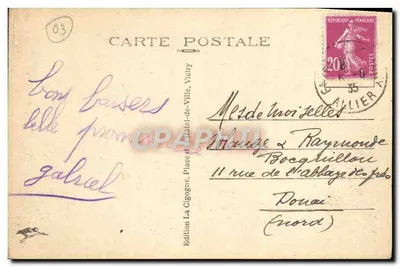 03
CARTE POSTALE
bons baisers
belle prom
gabriel
Edition La Cigogne, Place de l'Hôtel-de-Ville, Vichy
REPUBLIQUE FRANÇAISE
20c
35
ALLIER
Mesdemoiselles
& Raymonde
Bocquillon
11 rue de l'abbaye des prés
Douai
(nord)